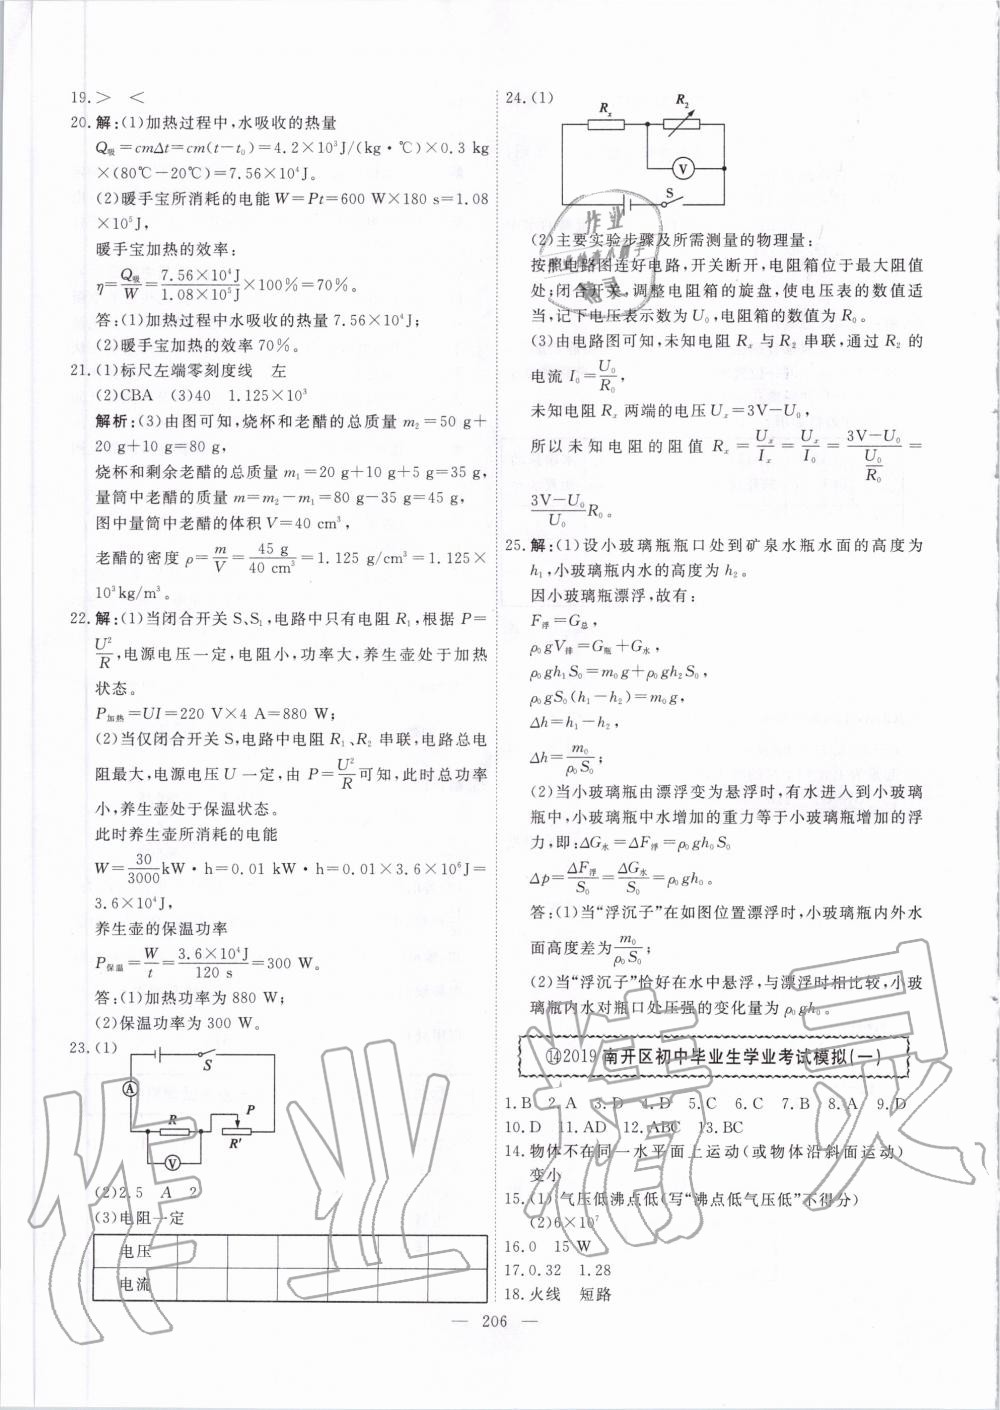 19.＞　＜
20.解:(1)加热过程中,水吸收的热量
Q吸=cmΔt=cm(t－t₀)=4.2×10³J/(kg·℃)×0.3 kg
×(80℃－20℃)=7.56×10⁴J。
(2)暖手宝所消耗的电能W=Pt=600 W×180 s=1.08
×10⁵J,
暖手宝加热的效率:
η=Q吸/W=7.56×10⁴J/1.08×10⁵J×100%=70%。
答:(1)加热过程中水吸收的热量 7.56×10⁴J;
(2)暖手宝加热的效率 70%。
21.(1)标尺左端零刻度线　左
(2)CBA　(3)40　1.125×10³
解析:(3)由图可知,烧杯和老醋的总质量 m₂=50 g+
20 g+10 g=80 g,
烧杯和剩余老醋的总质量 m₁=20 g+10 g+5 g=35 g,
量筒中老醋的质量 m=m₂－m₁=80 g－35 g=45 g,
图中量筒中老醋的体积 V=40 cm³,
老醋的密度 ρ=m/V=45 g/40 cm³=1.125 g/cm³=1.125×
10³kg/m³。
22.解:(1)当闭合开关 S、S₁,电路中只有电阻 R₁,根据 P=
U²/R,电源电压一定,电阻小,功率大,养生壶处于加热
状态。
P加热=UI=220 V×4 A=880 W;
(2)当仅闭合开关 S,电路中电阻 R₁、R₂ 串联,电路总电
阻最大,电源电压 U 一定,由 P=U²/R可知,此时总功率
小,养生壶处于保温状态。
此时养生壶所消耗的电能
W=30/3000kW·h=0.01 kW·h=0.01×3.6×10⁶J=
3.6×10⁴J,
养生壶的保温功率
P保温=W/t=3.6×10⁴J/120 s=300 W。
答:(1)加热功率为 880 W;
(2)保温功率为 300 W。
23.(1)
S
A
R
P
R′
V
(2)2.5　A　2
(3)电阻一定
电压
电流
24.(1)
Rₓ
R₂
V
S
(2)主要实验步骤及所需测量的物理量:
按照电路图连好电路,开关断开,电阻箱位于最大阻值
处;闭合开关,调整电阻箱的旋盘,使电压表的数值适
当,记下电压表示数为 U₀,电阻箱的数值为 R₀。
(3)由电路图可知,未知电阻 Rₓ 与 R₂ 串联,通过 R₂ 的
电流 I₀=U₀/R₀,
未知电阻 Rₓ 两端的电压 Uₓ=3V－U₀,
所以未知电阻的阻值 Rₓ=Uₓ/Iₓ=Uₓ/I₀=(3V－U₀)/(U₀/R₀)=
(3V－U₀)/U₀ R₀。
25.解:(1)设小玻璃瓶瓶口处到矿泉水瓶水面的高度为
h₁,小玻璃瓶内水的高度为 h₂。
因小玻璃瓶漂浮,故有:
F浮=G总,
ρ₀gV排=G瓶+G水,
ρ₀gh₁S₀=m₀g+ρ₀gh₂S₀,
ρ₀gS₀(h₁－h₂)=m₀g,
Δh=h₁－h₂,
Δh=m₀/ρ₀S₀;
(2)当小玻璃瓶由漂浮变为悬浮时,有水进入到小玻璃
瓶中,小玻璃瓶中水增加的重力等于小玻璃瓶增加的浮
力,即:ΔG水=ΔF浮=ρ₀gh₀S₀
Δp=ΔF浮/S₀=ΔG水/S₀=ρ₀gh₀。
答:(1)当“浮沉子”在如图位置漂浮时,小玻璃瓶内外水
面高度差为m₀/ρ₀S₀;
(2)当“浮沉子”恰好在水中悬浮,与漂浮时相比较,小玻
璃瓶内水对瓶口处压强的变化量为 ρ₀gh₀。
⑭2019 南开区初中毕业生学业考试模拟(一)
1.B　2.A　3.D　4.D　5.C　6.C　7.B　8.A　9.D
10.D　11.AD　12.ABC　13.BC
14.物体不在同一水平面上运动(或物体沿斜面运动)
变小
15.(1)气压低沸点低(写“沸点低气压低”不得分)
(2)6×10⁷
16.0　15 W
17.0.32　1.28
18.火线　短路
— 206 —
作业精灵